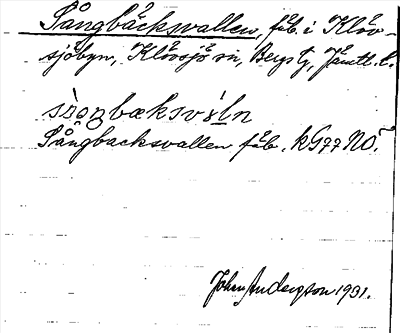 Sångbäcksvallen, fäb. i Klöv-
sjöbyn, Klövsjö sn, Bergs tg, Jämtl. l.
Sångbacksvallen fäb. kG77 NO.
Johan Anderzson 1931.